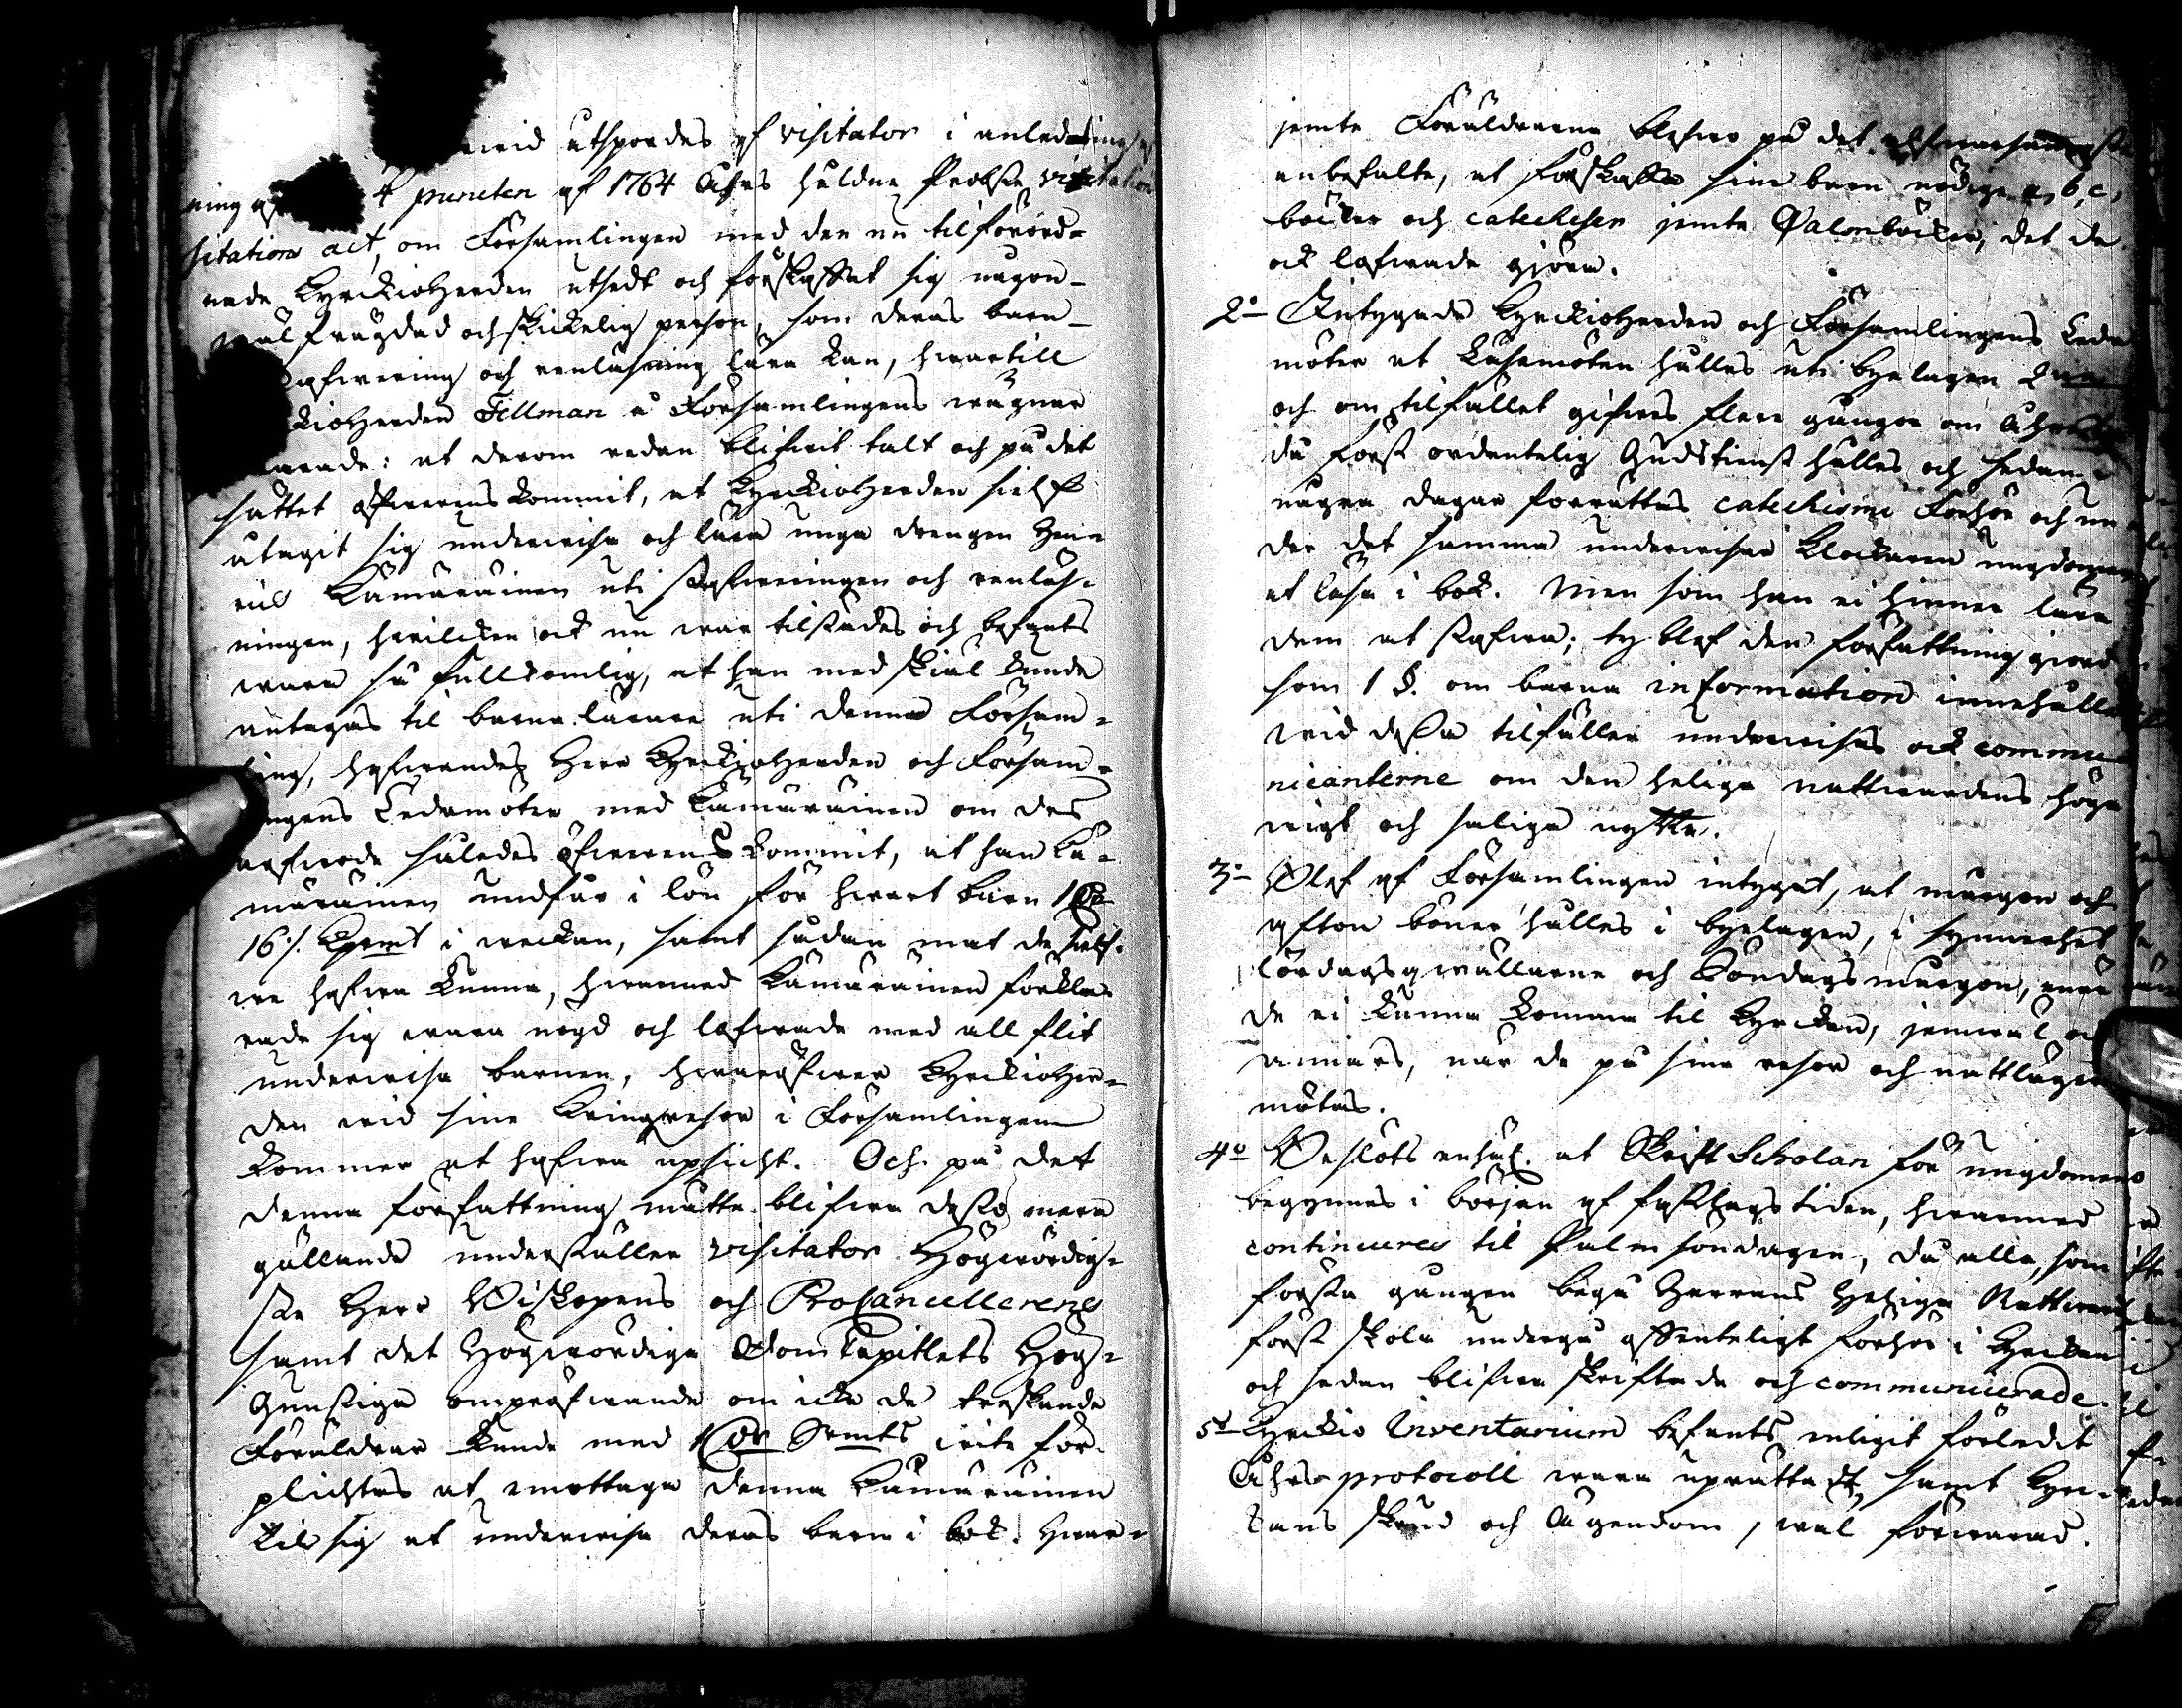 wid utspordes af visitator i anledning
ning af 4 puncten af 1764 Åhrs holdne Probste visitation
sitations act, om Församlingen med den nu tilförord-
nade Kyrckioherden utsedt och förskaffat sig någon
wäl fregdad och skickelig person, som deras barn
stafwering och renläsning lära kan, hwartill
kioherden Fellman å Församlingens wägnar
swarade: at derom redan blifwit talt och på det
sättet öfwerens kommit, at Kyrckioherden sielf
åtagit sig underwisa och lära unga drengen Hen-
ric Kämäräinen uti stafweringen och renläs-
ningen, hwilcken ock nu war tilstädes och befants
wara så fullkomlig, at han med skiäl kunde
antagas til barna lärare uti denna Försam-
ling, hafwandes Herr Kyrckioherden och Försam-
lingens Ledamöter med Kämäräinen om des
arfwode således öfwerens kommit, at han Kä-
märäinen undfår i lön för hwart barn 1 Dr
16 /. Kpmt i weckan, samt sådan mat de sielf-
we hafwa kunna, hwarmed Kämäräinen förkla-
rade sig wara nögd och lofwade med all flit
underwisa barnen, hwaröfwer Kyrckioher-
den wid sine kringresor i Församlingen
kommer at hafwa upsicht. Och på det
denna författning måtte blifwa desto mera
gällande underställer visitator Högwördig-
ste Herr Biskopens och ProCancellerens
samt det Högwördiga DomCapitlets Hög-
Gunstiga ompröfwande om icke de treskande
Föräldrar kunde med 1 Dr Smts wite för-
plichtas at emottaga denna Kämäräinen
til sig at underwisa deras barn i bok. Hwar-
jemte Föräldrarna blefwo på det alfwarsammaste
anbefalte, at förskaffa sine barn nödige a, b, c,
böcker och catecheser jemte Psalmböcker, det de
ock lofwade gjöra.
2o Intygade Kyrckioherden och Församlingens Leda
möter at Läsemöten hålles uti byelagen
och om tilfället gifwes flere gånger om Åhret
då först ordentelig Gudstienst hålles och sedan
några dagar förrättas catechismi Förhör och un
der det samma underwisar Klockaren ungdomen
at läsa i bok. Men som han ei hinner lära
dem at stafwa; ty blef den författning giord
som 1 §. om barna information innehåller
wid desse tilfällen underwises ock commu
nicanterne om den heliga nattwardens höga
wigt och saliga nytta.
3o Blef af Församlingen intygat, at morgon och
afton böner hålles i byelagen, i synnerhet
lördagsqwällarne och Söndags morgon, när
de ei kunna komma til Kyrckan, jemwäl ock
annars, när de på sine resor och nattläger
mötas.
4o Beslöts enhäl. at Skrift Scholan för ungdomen
begynnes i början af fastlags tiden, hwarmed
continueras til Palm söndagen, då alla, som
första gången begå Herrans Helige Nattward
först skola undergå offenteligt förhör i Kyrckan
och sedan blifwa skriftade och communicerade.
5t Kyrckio Inventarium befants enligit förledit
Åhrs protocoll wara uprättadt, samt Kyr-
kans skrud och Ägendom, wäl förwarad.